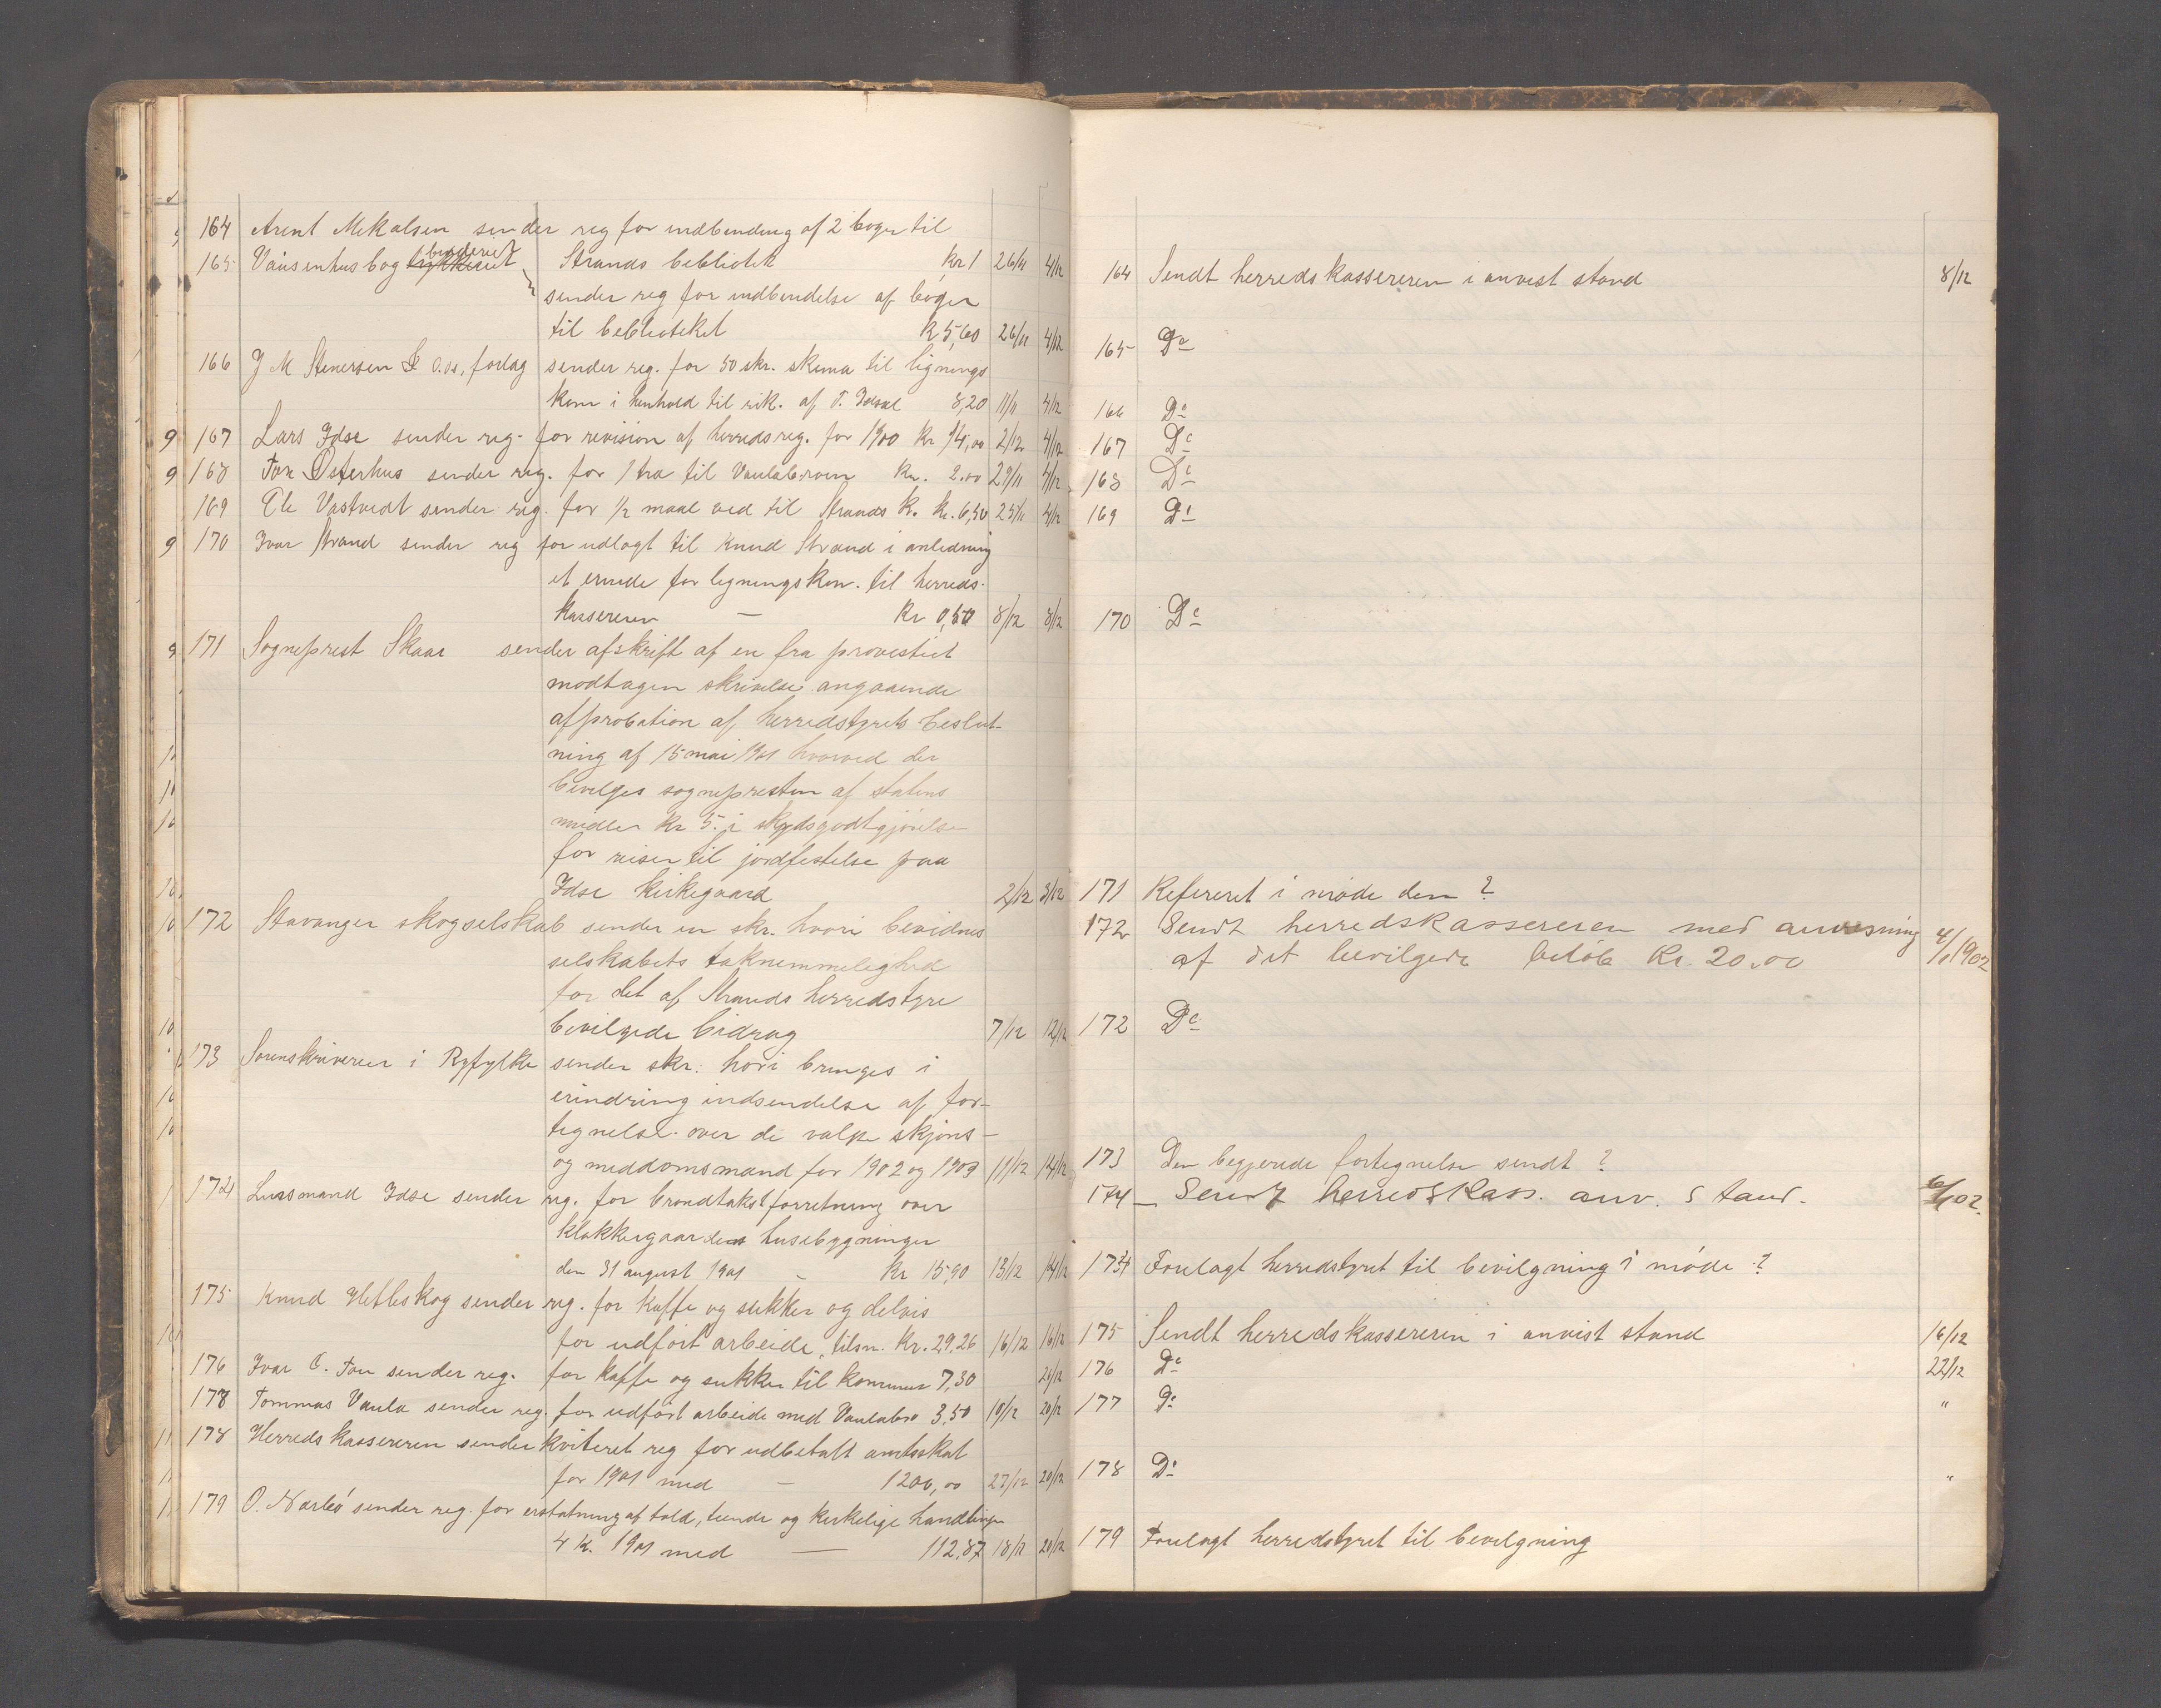 164 Arent Mikalsen sender reg for indbinding af 2 bøger til
165 Vaisenhusbogbinderiet Strands bebliotek kr 1 26/11 4/12
sender reg for indbindelse af bøger
til bebliotekel k 5,60 26/11 4/12
166 J M Stenersen & Co.s, forlag sender reg. for 50 skr. skema til lignings
kom i henhold til rik. af T. Idsal 8,20 11/11 4/12
9 167 Lars Idse sender reg. for revision af herredsreg. for 1900 kr 14,00 2/12 4/12
9 168 Tor Østerhus sender reg. for 1 træ til Vaulabroen kr. 2.00 29/11 4/12
169 Ele Vastvedt sender reg. for 1/2 maal ved til Strands k. kr. 6,50 25/11 4/12
9 170 Ivar Strand sender reg for udlagt til Knud Strand i anledning
et erinde for ligningskom. til herreds-
kassereren — kr 0,50 8/12 8/12
9 171 Sogneprest Skaar sender afskrift af en fra provestiet
modtagen skrivelse angaaende
approbation af herredstyrets beslut-
ning af 15 mai 1901 hvorved der
bevilges sognepresten af statens
midler kr 5. i skydsgodtgjørelse
for reiser til jordfestelse paa
Idse kirkegaard 2/12 3/12
172 Stavanger skogselskab sender en skr. hvori bevidnes
selskabets taknemmelighed
for det af Strands herredstyre
bevilgede bidrag 7/12 12/12
173 Sorenskriveren i Ryfylke sender skr. hvori bringes i
erindring indsendelse af for-
tegnelse over de valgte skjøns-
og meddomsmænd for 1902 og 1903 11/12 14/12
174 Lensmand Idse sender reg. for brandtakstforretning over
klokkergaardens husebygninger
den 31 august 1901 - kr 15,90 13/12 14/12
175 Knud Hetleskog sender reg. for kaffe og sukker og delvis
for udført arbeide, tilsm. kr. 29,26 16/12 16/12
176 Ivar O. Tau sender reg. for kaffe og sukker til kommun 7,30 20/12
177 Tommas Vaula sender reg. for udført arbeide med Vaulabro 3,50 10/12 20/12
178 Herredskassereren sender kviteret reg for udbetalt amtsskat
for 1901 med - 1200,00 27/12 20/12
179 O. Narbø sender reg. for erstatning af told, tiende og kirkelige handlinger
4 k. 1901 med — 112,87 18/12 20/12
164 Sendt herredskassereren i anvist stand 8/12
165 Do
166 Do
167 Do
168 Do
169 Do
170 Do
171 Refereret i møde den ?
172 Sendt herredskassereren med anvisning 4/1 1902
af det bevilgede beløb Kr. 20.00
172 Do
173 Den begjerede fortegnelse sendt ?
174 — Sendt herredskass. anv. stand. 6/1 02.
174 Forelagt herredstyret til bevilgning i møde ?
175 Sendt herredskassereren i anvist stand 16/12
176 Do 22/12
177 Do "
178 Do "
179 Forelagt herredstyret til bevilgning